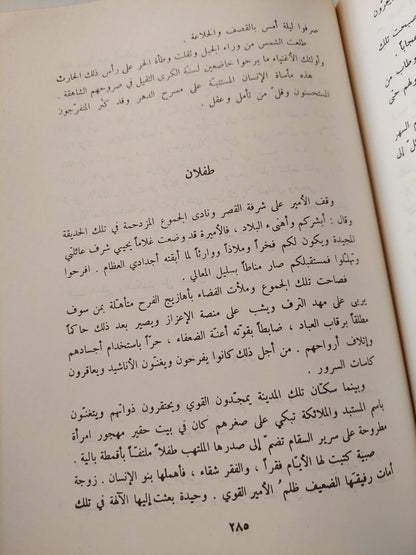 صرفوا ليلة أمس بالقصف والخلاعة .
طلعت الشمس من وراء الجبل وثقلت وطأة الحر على رأس ذلك الحارث
وأولئك الأغنياء ما برحوا خاضعين لسنّة الكرى الثقيل في صروحهم الشاهقة .
هذه مأساة الإنسان المستتبّة على مسرح الدهر وقد كثر المتفرجون
المستحسنون وقلّ من تأمل وعقل .
طفلان
وقف الأمير على شرفة القصر ونادى الجموع المزدحمة في تلك الحديقة
وقال : أبشركم وأهنىء البلاد ، فالأميرة قد وضعت غلاماً يحيي شرف عائلتي
المجيدة ويكون لكم فخراً وملاذاً ووارثاً لما أبقته أجدادي العظام . افرحوا
وتهلّلوا فمستقبلكم صار مناطاً بسليل المعالي .
فصاحت تلك الجموع وملأت الفضاء بأهازيج الفرح متأهلة بمن سوف
يربى على مهد الترف ويشب على منصة الإعزاز ويصير بعد ذلك حاكماً
مطلقاً برقاب العباد ، ضابطاً بقوته أعنّة الضعفاء ، حراً باستخدام أجسادهم
وإتلاف أرواحهم . من أجل ذلك كانوا يفرحون ويغنّون الأناشيد ويعاقرون
كاسات السرور .
وبينما سكّان تلك المدينة يمجّدون القوي ويحتقرون ذواتهم ويتغنّون
باسم المستبد والملائكة تبكي على صغرهم كان في بيت حقير مهجور امرأة
مطروحة على سرير السقام تضم إلى صدرها الملتهب طفلاً ملتفّاً بأقمطة بالية .
صبية كتبت لها الأيّام فقراً ، والفقر شقاء ، فأهملها بنو الإنسان . زوجة
أمات رفيقها الضعيف ظلمُ الأمير القوي . وحيدة بعثت إليها الآلهة في تلك
٢٨٥